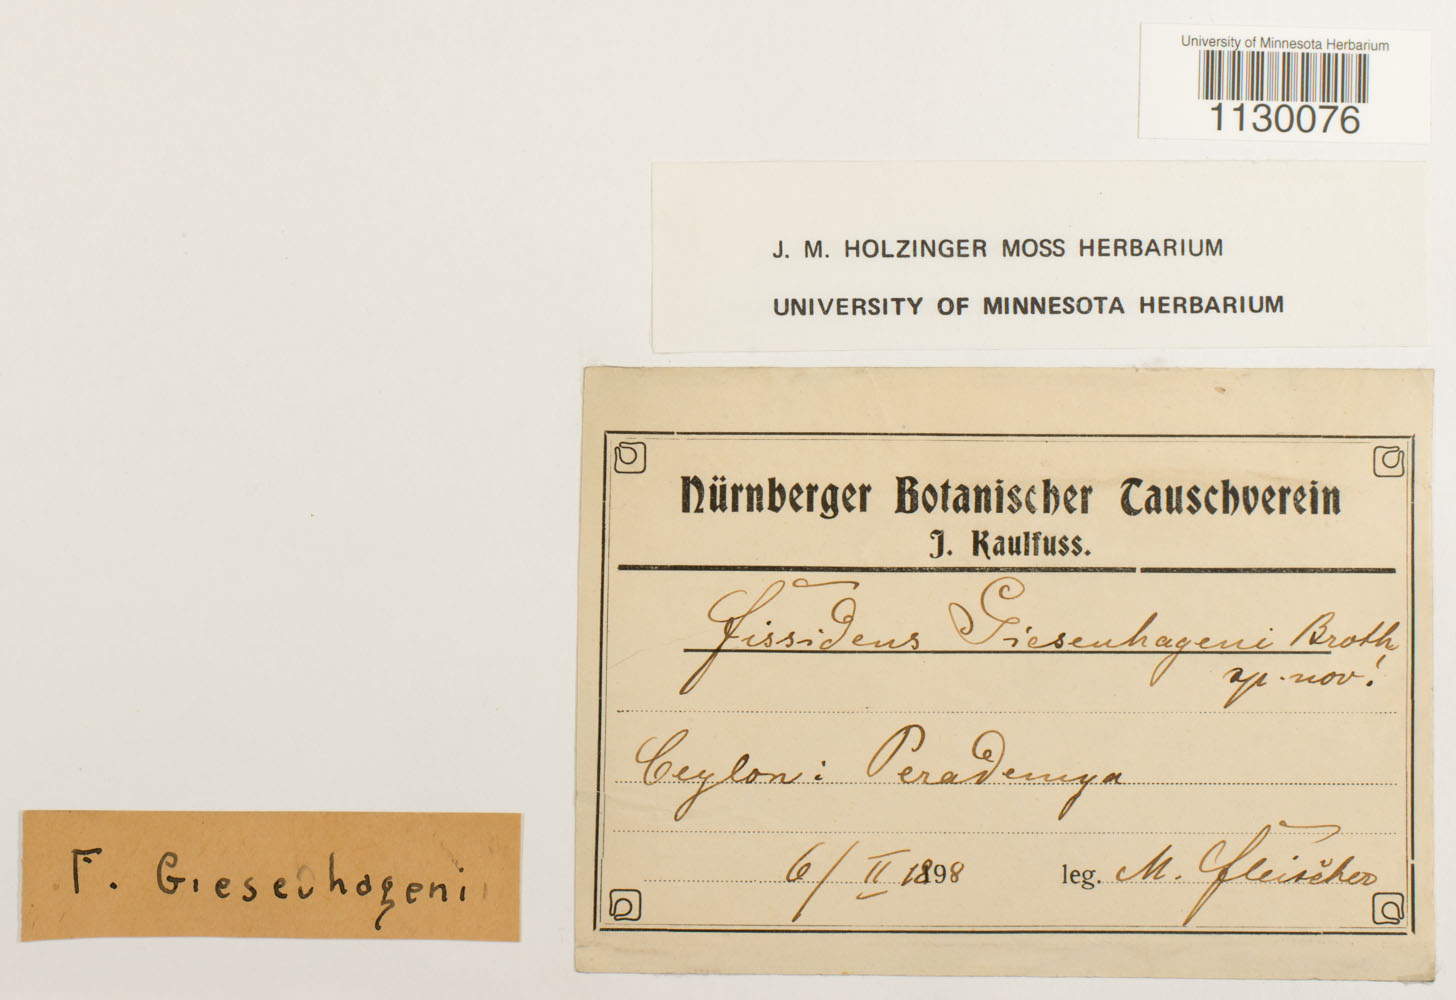 University of Minnesota Herbarium
1130076
J. M. HOLZINGER MOSS HERBARIUM
UNIVERSITY OF MINNESOTA HERBARIUM
Nürnberger Botanischer Tauschverein
J. Kaulfuss.
Fissidens Giesenhageni Broth
sp. nov!
Ceylon: Peradenya
6/II 1898 leg. M. Fleischer
F. Giesenhageni